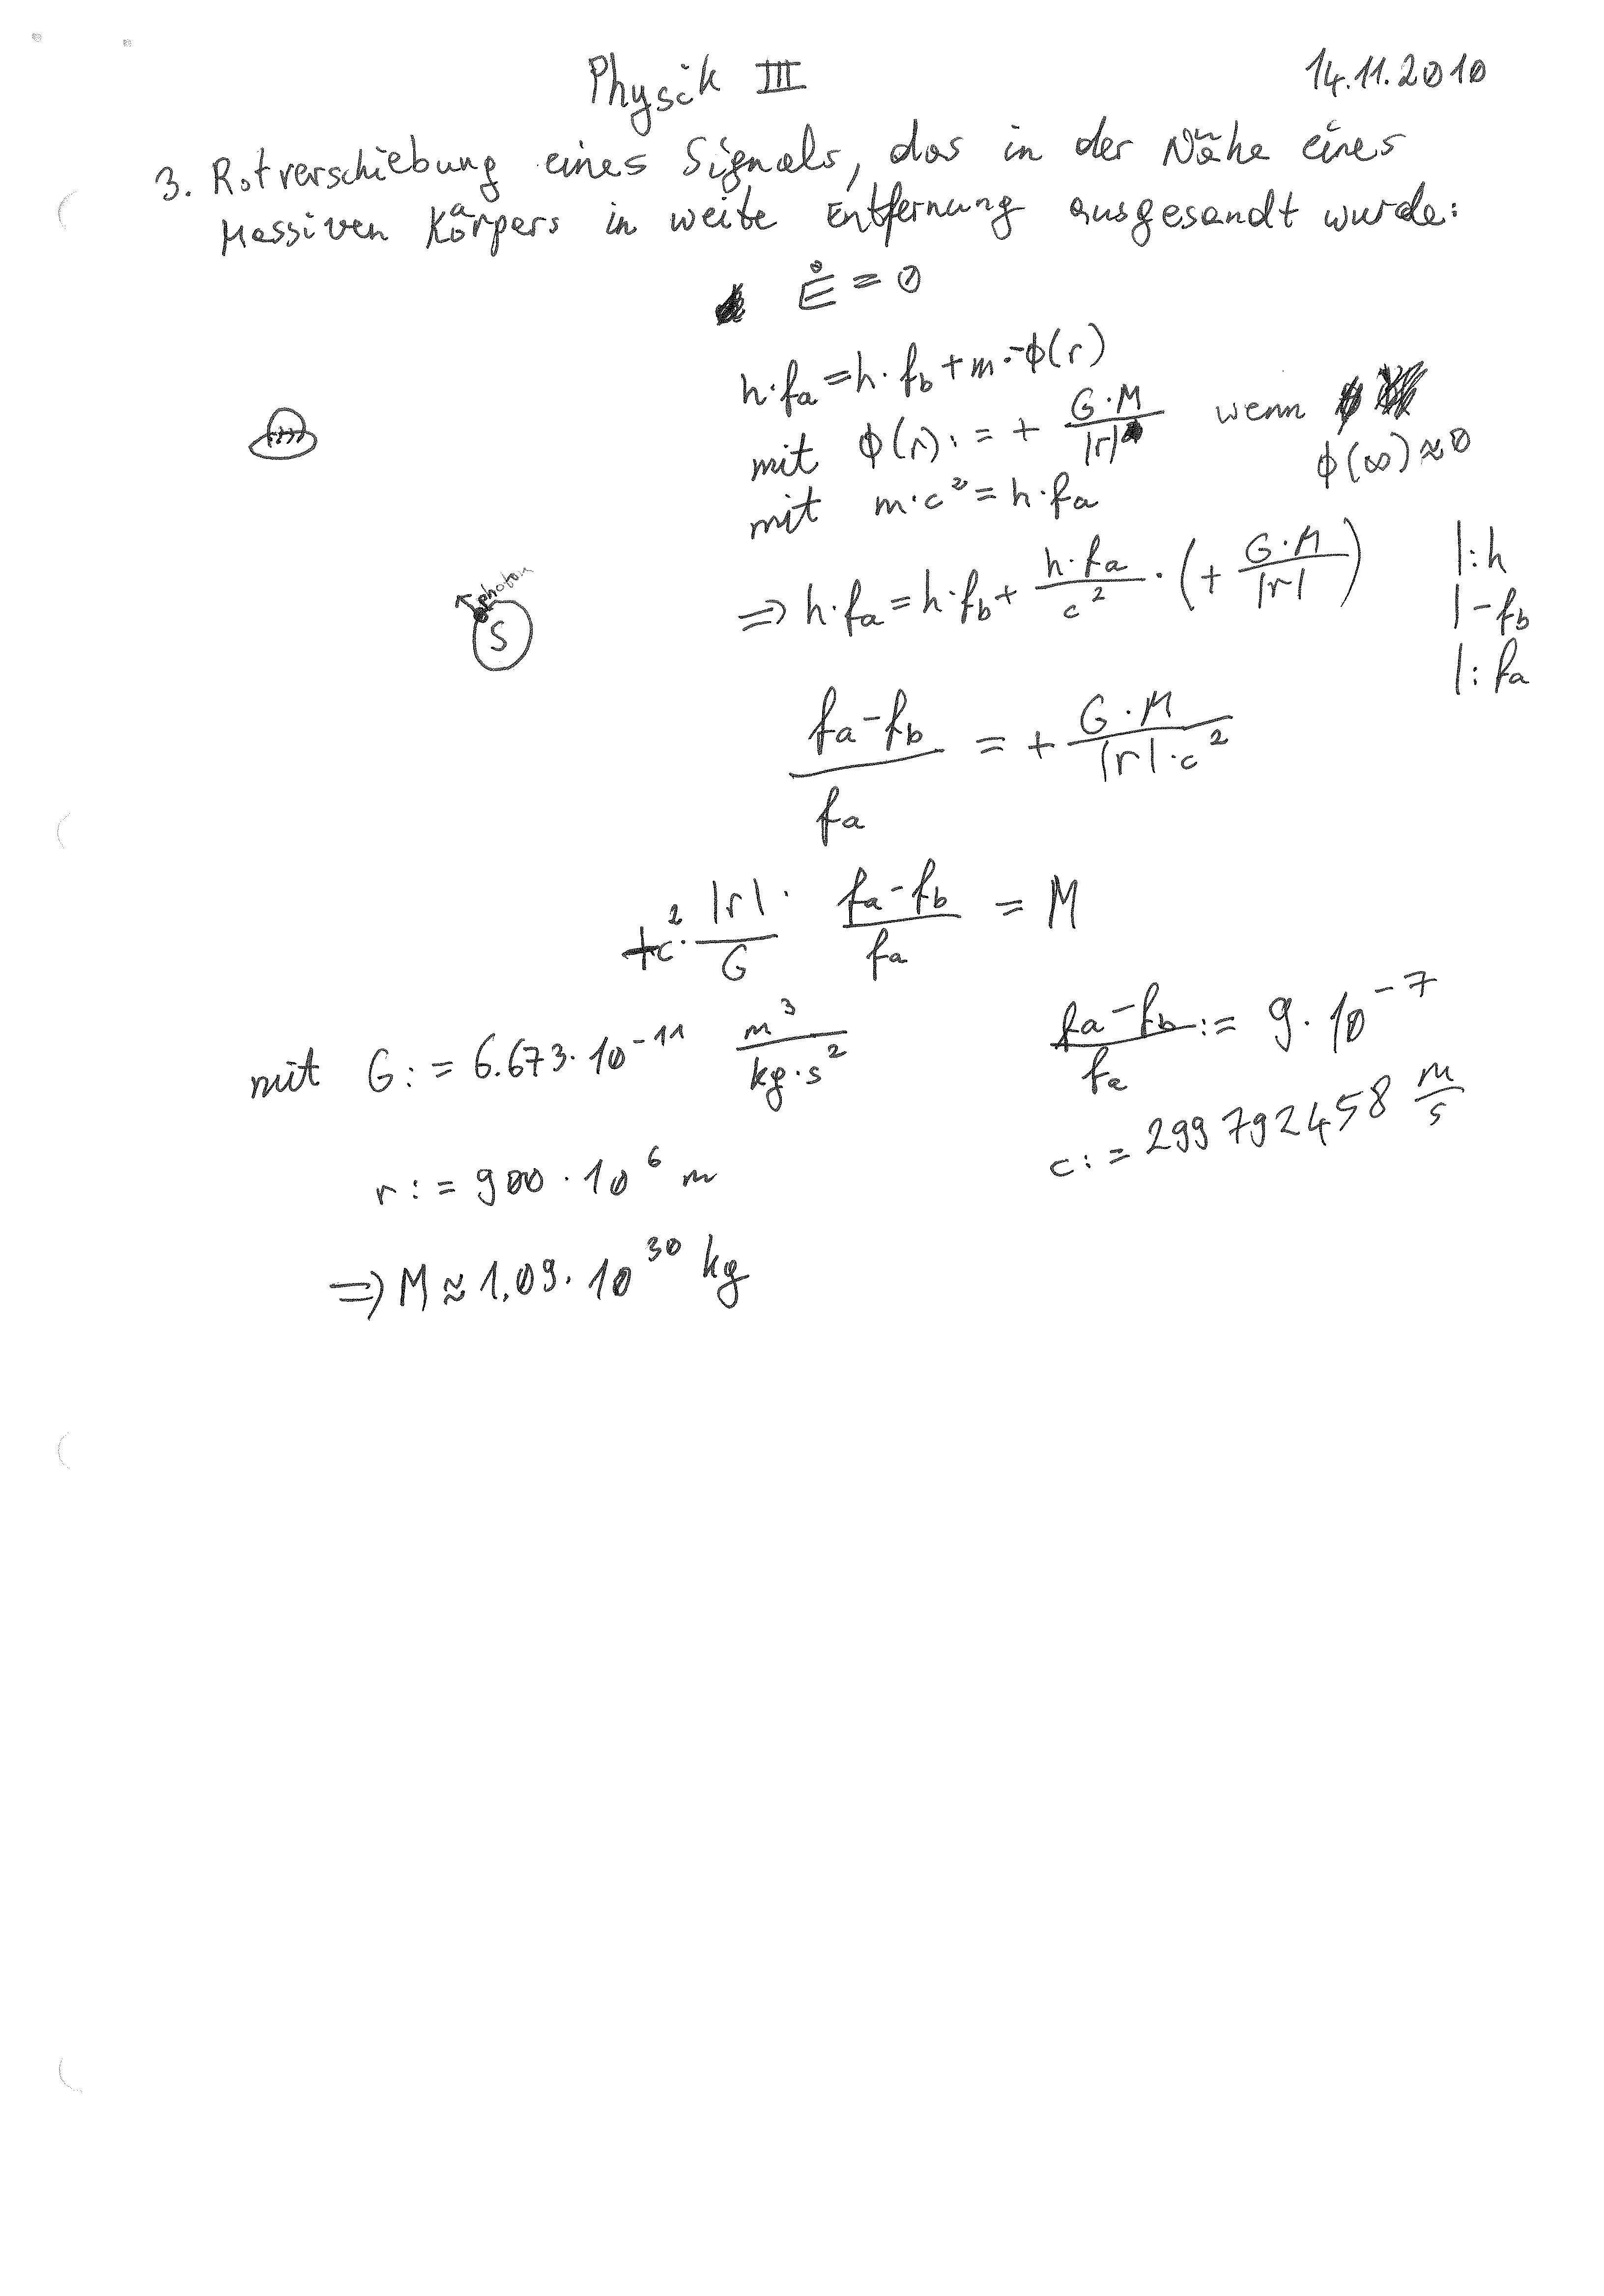 Physik III 14.11.2010
3. Rotverschiebung eines Signals, das in der Nähe eines
Massiven Körpers in weite Entfernung ausgesandt wurde:
Ė = 0
h·fa = h·fb + m·-ϕ(r)
mit ϕ(r) := + G·M/|r| wenn
ϕ(∞) ≈ 0
mit m·c² = h·fa
photon
S
⇒ h·fa = h·fb + h·fa/c² · (+ G·M/|r|) |:h
|-fb
|:fa
(fa-fb)/fa = + G·M/(|r|·c²)
+c²·|r|/G · (fa-fb)/fa = M
mit G := 6.673·10⁻¹¹ m³/(kg·s²) (fa-fb)/fa := 9·10⁻⁷
c := 299792458 m/s
r := 900·10⁶ m
⇒ M ≈ 1.09·10³⁰ kg